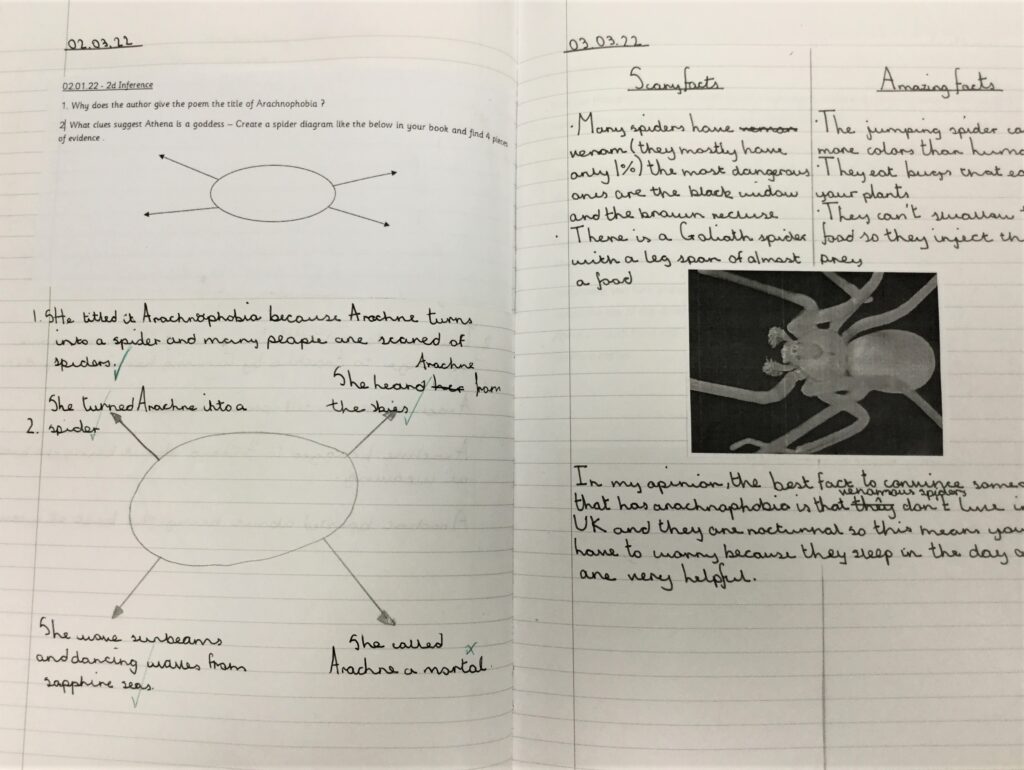 02.03.22
02.01.22 - 2d Inference
1. Why does the author give the poem the title of Arachnophobia ?
2 What clues suggest Athena is a goddess – Create a spider diagram like the below in your book and find 4 pieces
of evidence .
1. SHe titled it Arachnophobia because Arachne turns
into a spider and many people are scared of
spiders.
She turned Arachne into a
2. spider
Arachne
She heard her from
the skies
She wove sunbeams
and dancing waves from
sapphire seas.
She called
Arachne a mortal.
03.03.22
Scary facts
· Many spiders have
venom (they mostly have
only 1%) the most dangerous
ones are the black widow
and the brown recluse
· There is a Goliath spider
with a leg span of almost
a food
Amazing facts
· The jumping spider
more colors than
· They eat bugs that
your plants
· They can't swallow
food so they inject
prey
In my opinion, the best fact to convince
venomous spiders
that has arachnophobia is that they don't live
UK and they are nocturnal so this means
have to worry because they sleep in the day
are very helpful.